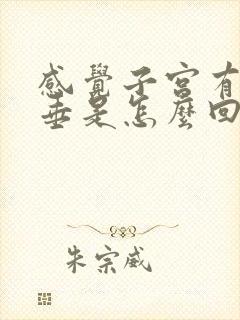 感覺子宮有
垂是怎麼回
朱宗威